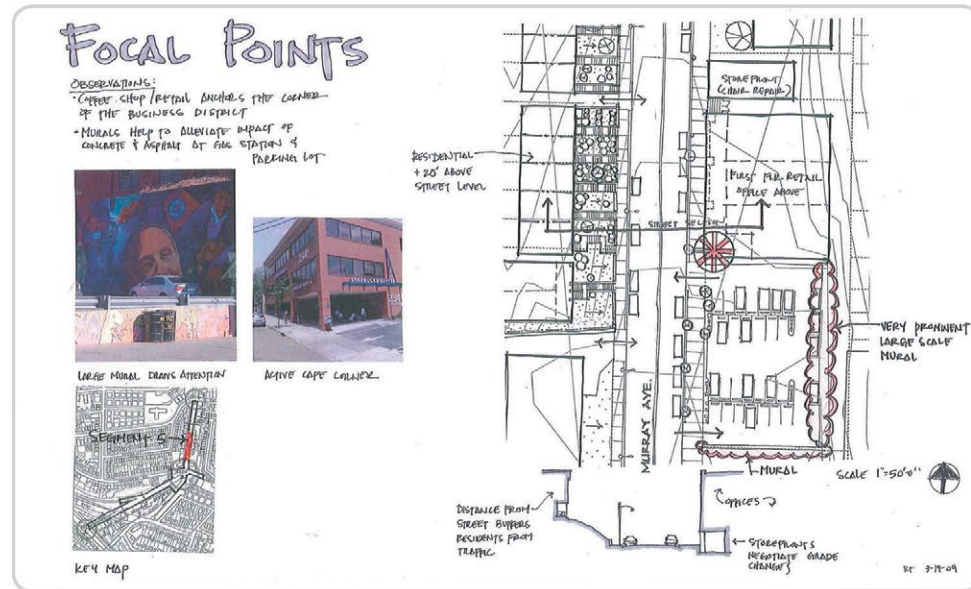 FOCAL POINTS
OBSERVATIONS:
• COFFEE SHOP / RETAIL ANCHORS THE CORNER
OF THE BUSINESS DISTRICT
• MURALS HELP TO ALLEVIATE IMPACT OF
CONCRETE & ASPHALT AT GAS STATION &
PARKING LOT
LARGE MURAL DRAWS ATTENTION
ACTIVE CAFE CORNER
SEGMENT 5
KEY MAP
RESIDENTIAL
+ 20' ABOVE
STREET LEVEL
STOREFRONT
(CHAIR REPAIR)
FIRST FLR RETAIL
OFFICE ABOVE
STREET
VERY PROMINENT
LARGE SCALE
MURAL
MURRAY AVE.
MURAL
SCALE 1"=50'-0"
DISTANCE FROM
STREET BUFFERS
RESIDENTS FROM
TRAFFIC
OFFICES
STOREFRONTS
NEGOTIATE GRADE
CHANGES